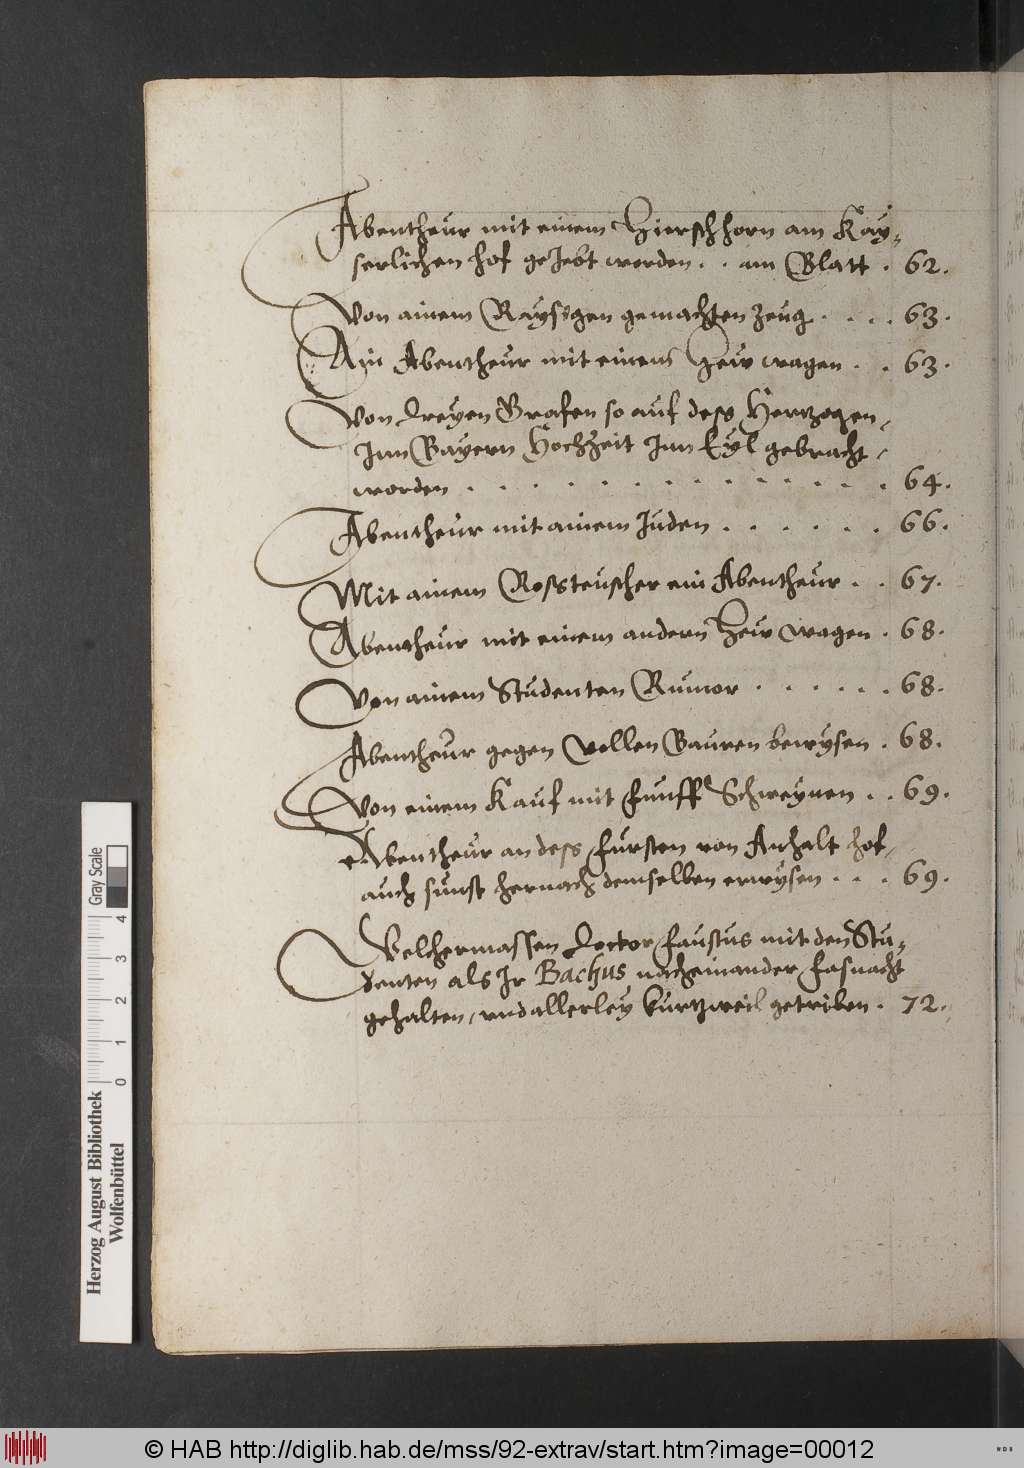 Abentheur mit einem Hierschhorn am Kay-
serlichen hof geiebt worden . . am Blatt . 62.
Von ainem Raysigen gemachten zeug . . . . 63.
Ain Abentheur mit einem Hew wagen . . 63.
Von dreyen Grafen so auf dess Hertzogen
Inn Bayern Hochzeit Inn Eyl gebracht
worden . . . . . . . . . . . . . 64.
Abentheur mit ainem Juden . . . . . . 66.
Mit ainem Rossteuscher ein Abentheur . . 67.
Abentheur mit einem andern Hew wagen . 68.
Von ainem Studenten Rumor . . . . . . 68.
Abentheur gegen vollen Bauren bewysen . 68.
Von einem Kauf mit funff Schweynen . . 69.
Abentheur an dess fursten von Anhalt hof
auch sunst hernach demselben erwysen . . . 69.
Welchermassen Doctor faustus mit den Stu-
denten als Ir Bachus nacheinander fasnacht
gehalten, vnd allerley kurtzweil getriben . 72.
Herzog August Bibliothek
Wolfenbüttel
Gray Scale
0 1 2 3 4
© HAB http://diglib.hab.de/mss/92-extrav/start.htm?image=00012